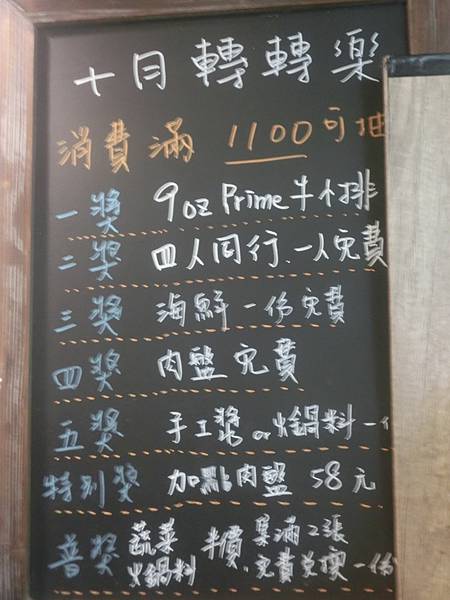 十月轉轉樂
消費滿 1100可抽
一獎 9oz Prime牛小排
二獎 四人同行、一人免費
三獎 海鮮一份免費
四獎 肉盤免費
五獎 手工漿or火鍋料一
特別獎 加點肉盤 58元
普獎 蔬菜 半價 集滿2張
火鍋料 、免費兌換一份